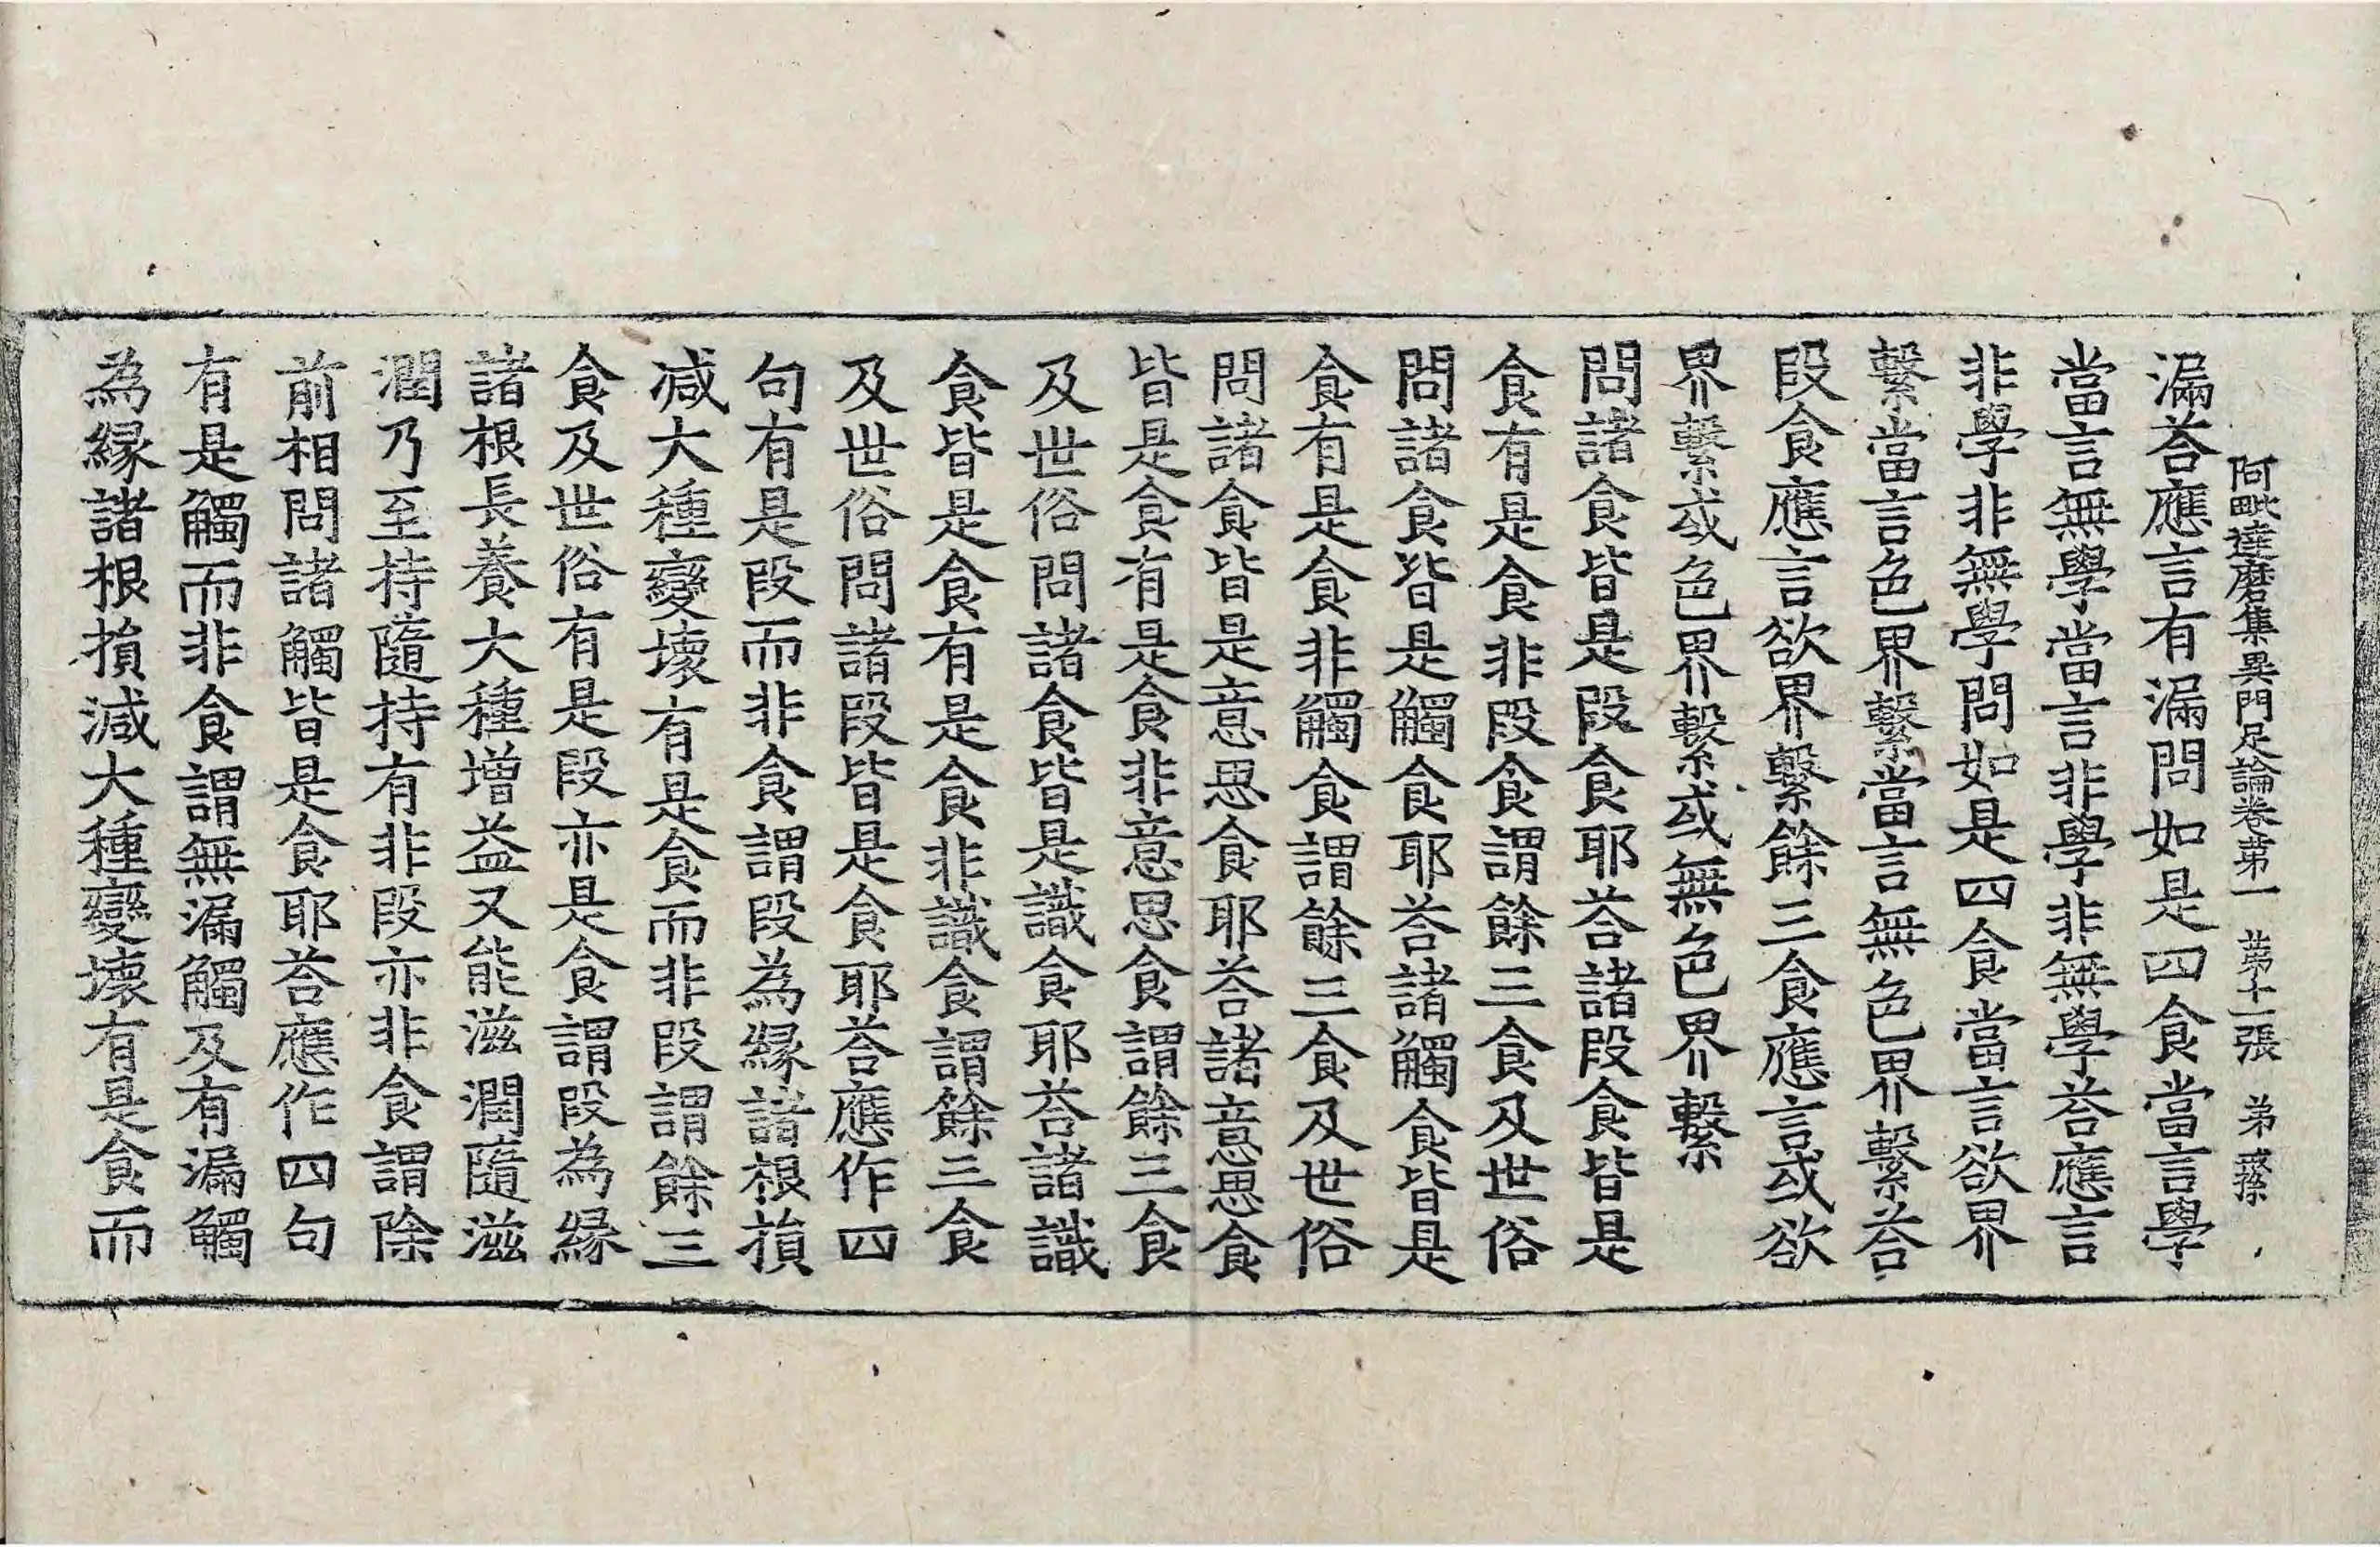 阿毗達磨集異門足論卷第一　第十一張　弟
漏荅應言有漏問如是四食當言學
當言無學當言非學非無學荅應言
非學非無學問如是四食當言欲界
繫當言色界繫當言無色界繫荅
段食應言欲界繫餘三食應言或欲
界繫或色界繫或無色界繫
問諸食皆是段食耶荅諸段食皆是
食有是食非段食謂餘三食及世俗
問諸食皆是觸食耶荅諸觸食皆是
食有是食非觸食謂餘三食及世俗
問諸食皆是意思食耶荅諸意思食
皆是食有是食非意思食謂餘三食
及世俗問諸食皆是識食耶荅諸識
食皆是食有是食非識食謂餘三食
及世俗問諸段皆是食耶荅應作四
句有是段而非食謂段為緣諸根損
減大種變壞有是食而非段謂餘三
食及世俗有是段亦是食謂段為緣
諸根長養大種增益又能滋潤隨滋
潤乃至持隨持有非段亦非食謂除
前相問諸觸皆是食耶荅應作四句
有是觸而非食謂無漏觸及有漏觸
為緣諸根損減大種變壞有是食而